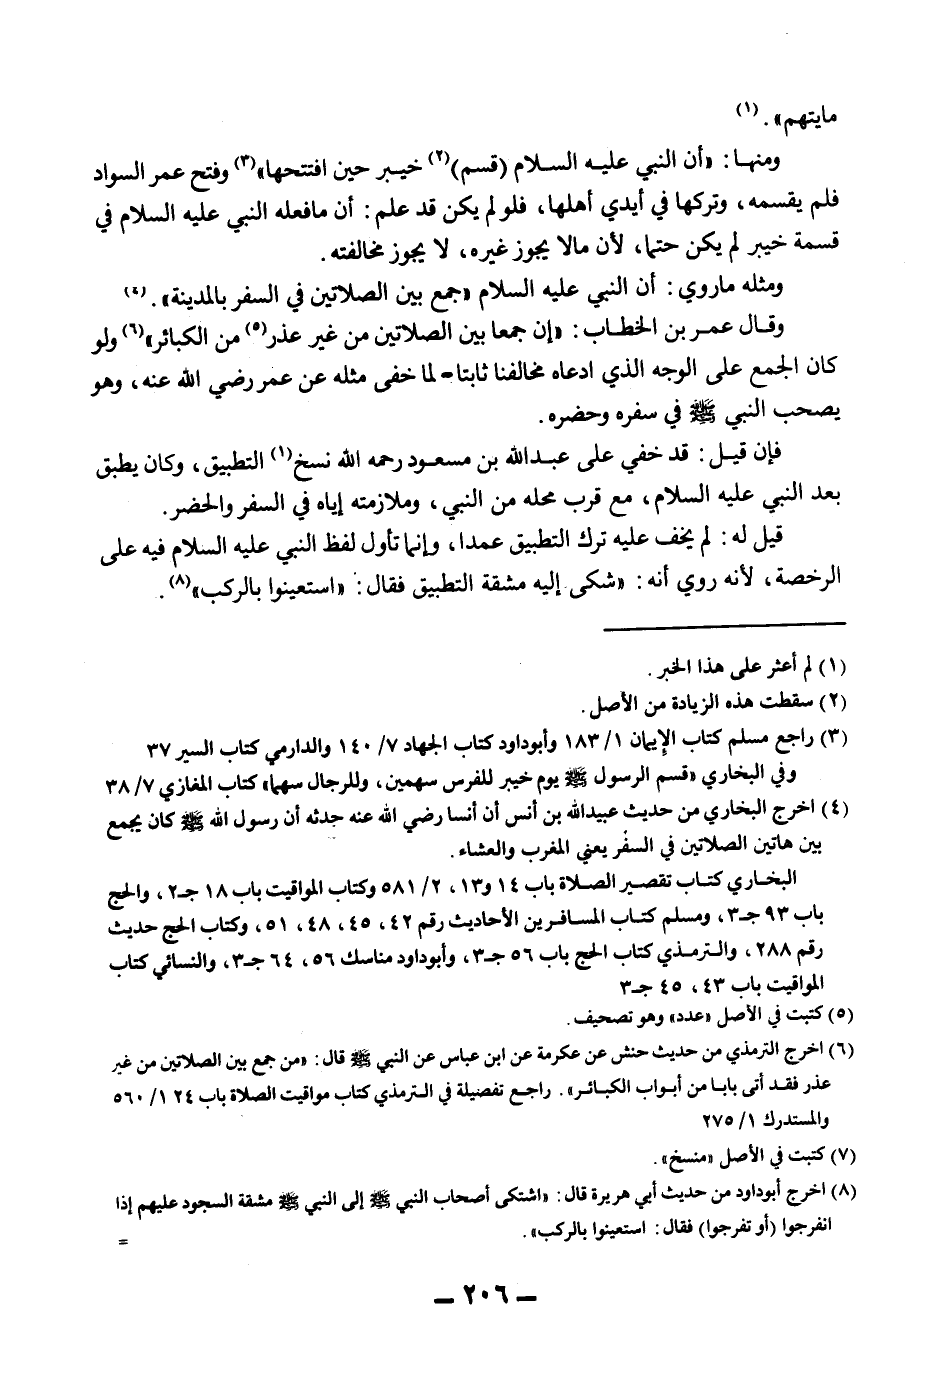 مايتهم» . (١)
ومنها : «أن النبي عليه السلام (قسم)(٢) خيبر حين افتتحها»(٣) وفتح عمر السواد
فلم يقسمه ، وتركها في أيدي أهلها، فلو لم يكن قد علم : أن مافعله النبي عليه السلام في
قسمة خيبر لم يكن حتما، لأن مالا يجوز غيره، لا يجوز مخالفته .
ومثله ماروي : أن النبي عليه السلام «جمع بين الصلاتين في السفر بالمدينة» . (٤)
وقال عمر بن الخطاب : «إن جمعا بين الصلاتين من غير عذر(٥) من الكبائر»(٦) ولو
كان الجمع على الوجه الذي ادعاه مخالفنا ثابتا - لما خفى مثله عن عمر رضي الله عنه ، وهو
يصحب النبي ﷺ في سفره وحضره .
فإن قيل : قد خفي على عبدالله بن مسعود رحمه الله نسخ(١) التطبيق ، وكان يطبق
بعد النبي عليه السلام، مع قرب محله من النبي ، وملازمته إياه في السفر والحضر .
قيل له : لم يخف عليه ترك التطبيق عمدا، وإنما تأول لفظ النبي عليه السلام فيه على
الرخصة ، لأنه روي أنه : «شكى إليه مشقة التطبيق فقال : «استعينوا بالركب»(٨) .
(١) لم أعثر على هذا الخبر .
(٢) سقطت هذه الزيادة من الأصل .
(٣) راجع مسلم كتاب الإيمان ١/ ١٨٣ وأبوداود كتاب الجهاد ٧/ ١٤٠ والدارمي كتاب السير ٣٧
وفي البخاري «قسم الرسول ﷺ يوم خيبر للفرس سهمين ، وللرجال سهما» كتاب المغازي ٧/ ٣٨
(٤) اخرج البخاري من حديث عبيدالله بن أنس أن أنسا رضي الله عنه حدثه أن رسول الله ﷺ كان يجمع
بين هاتين الصلاتين في السفر يعني المغرب والعشاء .
البخاري كتاب تقصير الصلاة باب ١٤ و١٣، ٢/ ٥٨١ وكتاب المواقيت باب ١٨ جـ٢، والحج
باب ٩٣ جـ٣، ومسلم كتاب المسافرين الأحاديث رقم ٤٢، ٤٥، ٤٨، ٥١، وكتاب الحج حديث
رقم ٢٨٨، والترمذي كتاب الحج باب ٥٦ جـ٣، وأبوداود مناسك ٥٦، ٦٤ جـ٣، والنسائي كتاب
المواقيت باب ٤٣، ٤٥ جـ٣
(٥) كتبت في الأصل «عدد» وهو تصحيف .
(٦) اخرج الترمذي من حديث حنش عن عكرمة عن ابن عباس عن النبي ﷺ قال : «من جمع بين الصلاتين من غير
عذر فقد أتى بابا من أبواب الكبائر» . راجع تفصيلة في الترمذي كتاب مواقيت الصلاة باب ٢٤ ١/ ٥٦٠
والمستدرك ١/ ٢٧٥
(٧) كتبت في الأصل «منسخ» .
(٨) اخرج أبوداود من حديث أبي هريرة قال : «اشتكى أصحاب النبي ﷺ إلى النبي ﷺ مشقة السجود عليهم إذا
انفرجوا (أو تفرجوا) فقال : استعينوا بالركب» .
=
ـ ٢٠٦ ـ